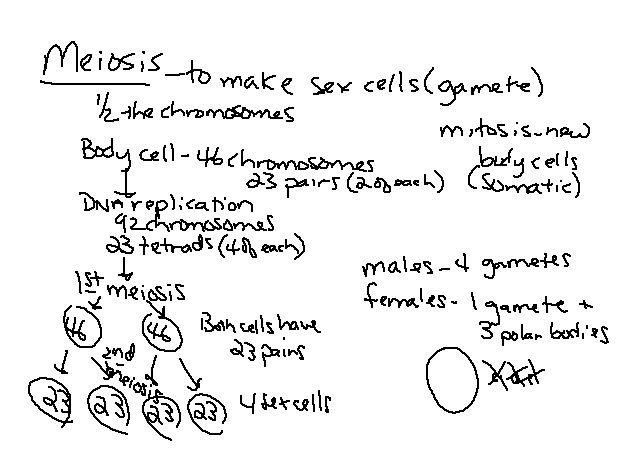 Meiosis - to make sex cells (gamete)
1/2 the chromosomes
mitosis - new
body cells
(somatic)
Body cell - 46 chromosomes
23 pairs (2 of each)
DNA replication
92 chromosomes
23 tetrads (4 of each)
1st meiosis
46 46
Both cells have
23 pairs
2nd
meiosis
23 23 23 23
4 sex cells
males - 4 gametes
females - 1 gamete +
3 polar bodies